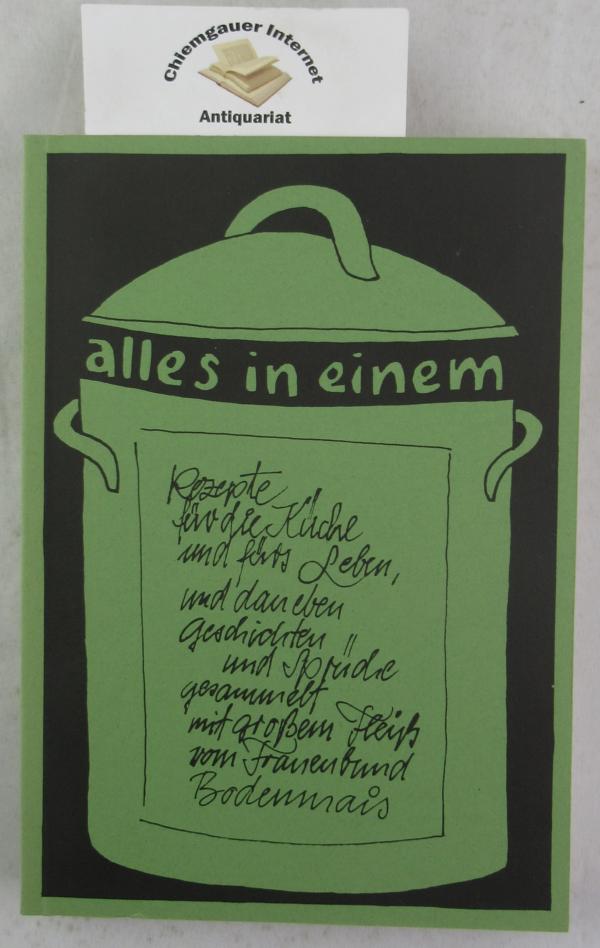 Chiemgauer Internet
Antiquariat
alles in einem
Rezepte
für die Küche
und fürs Leben,
und daneben
Geschichten
und Sprüche
gesammelt
mit großem Fleiß
vom Frauenbund
Bodenmais